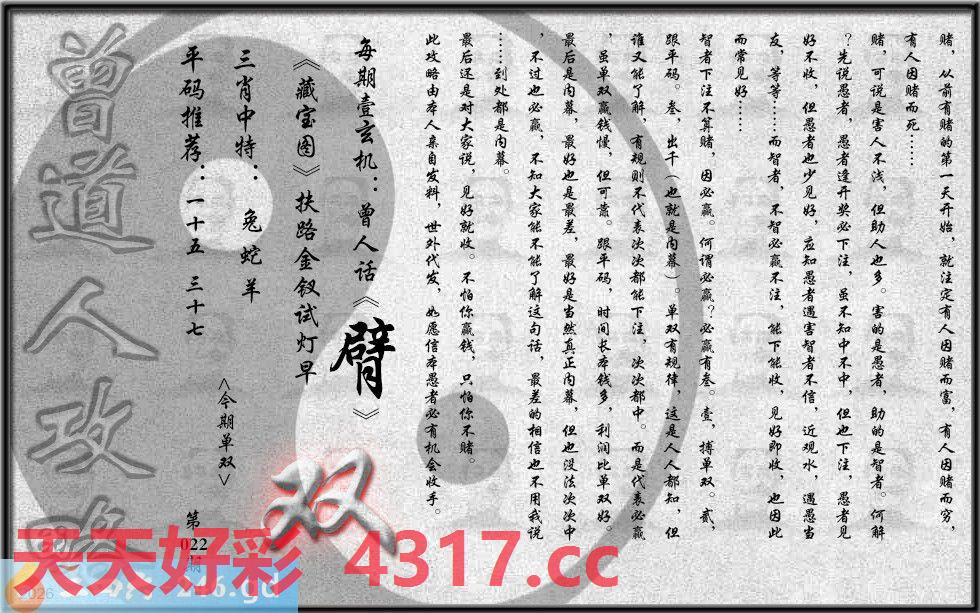 赌，从前有赌的第一天开始，就注定有人因赌而富，有人因赌而穷，
有人因赌而死……
赌，可说是害人不浅，但助人也多。害的是愚者，助的是智者。何解
？先说愚者，愚者逢开奖必下注，虽不知中不中，但也下注，愚者见
好不收，但愚者也少见好，应知愚者遇害智者不信，近观水，遇愚当
友，等等……而智者，不智必赢不注，能下能收，见好即收，也因此
而常见好……
智者下注不算赌，因必赢。何谓必赢？必赢有叁。壹，搏单双。贰，
跟平码。叁，出千（也就是内幕）。单双有规律，这是人人都知，但
谁又能了解，有规则不代表次次都能下注，次次都中。而是代表必赢
，虽单双赢钱慢，但可靠。跟平码，时间长本钱多，利润比单双好。
最后是内幕，最好也是最差，最好是当然真正内幕，但也没法次次中
，不过也必赢，不知大家能不能了解这句话，最差的相信也不用我说
……到处都是内幕。
最后还是对大家说，见好就收。不怕你赢钱，只怕你不赌。
此攻略由本人亲自发料，世外代发，如愿信本愚者必有机会收手。
每期壹玄机：曾人话《臂》
《藏宝图》扶路金钗试灯早
三肖中特：兔蛇羊
平码推荐：一十五 三十七
<今期单双>
双
第
022
期
曾道人攻略
天天好彩 4317.cc